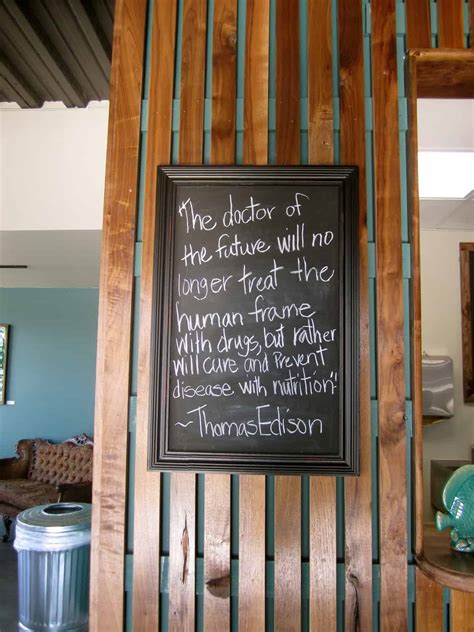 "The doctor of
the future will no
longer treat the
human frame
with drugs, but rather
will cure and Prevent
disease with nutrition"!
~ThomasEdison